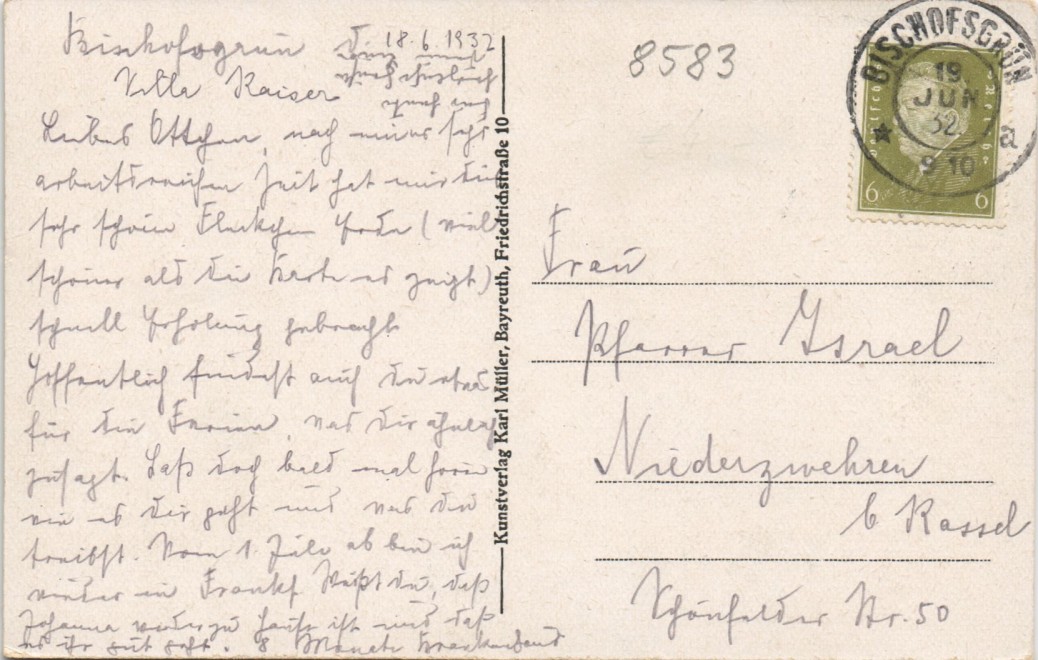 Bischofsgrün d. 18.6.1932
Villa Kaiser
Liebes Ottchen, nach meiner sehr
arbeitsreichen Zeit hat mir dies
sehr schöne Fleckchen Erde (viel
schöner als die Karte es zeigt)
schnell Erholung gebracht.
Hoffentlich findest auch du etwas
für die Ferien, was dir ähnlich
zusagt. Laß doch bald mal hören
wie es dir geht und was du
treibst. Vom 1. Juli ab bin ich
wieder in Frankf. Weißt du, daß
Johanna wieder zu Hause ist und daß
es ihr gut geht. 8 Monate
Kunstverlag Karl Müller, Bayreuth, Friedrichstraße 10
8583
BISCHOFSGRÜN
19.
JUN
32.
9-10
a
6 6
Frau
Pfarrer Israel
Niederzwehren
b Kassel
Schönfelder Str. 50